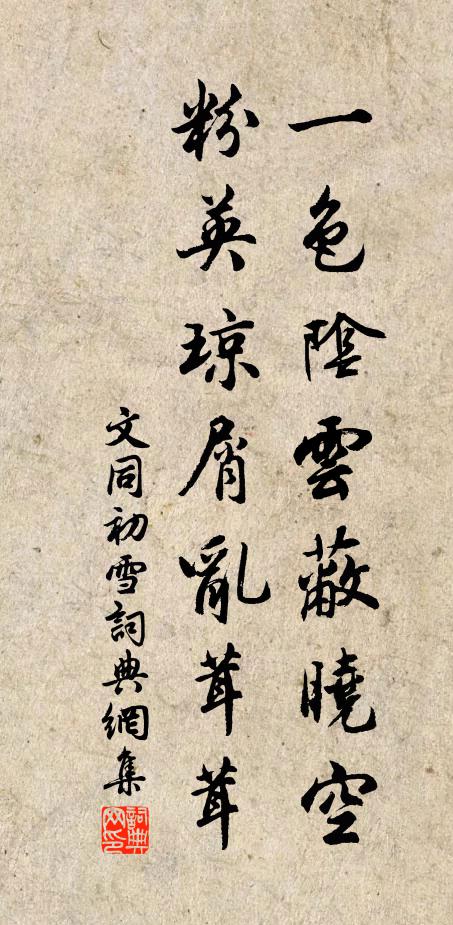 一色陰雲蔽曉空
粉英琼屑亂茸茸
文同初雪詞典網集
詞典网印